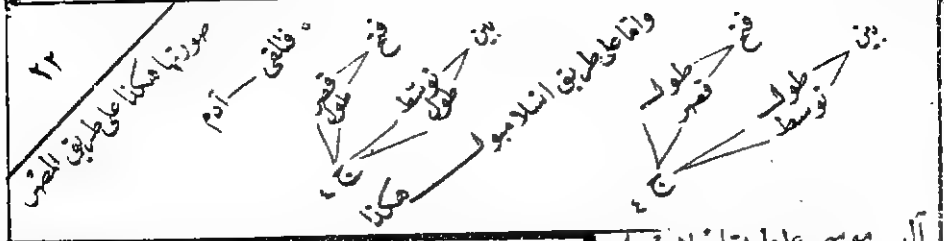 ٢٢
صورتها هكذا على طريق المصر
فتلقى — آدم
فتح
بين
قصر
طول
توسط
طول
ج ٤
واما على طريق اسلامبول هكذا
فتح
بين
طول
قصر
طول
توسط
ج ٤
آل موسى